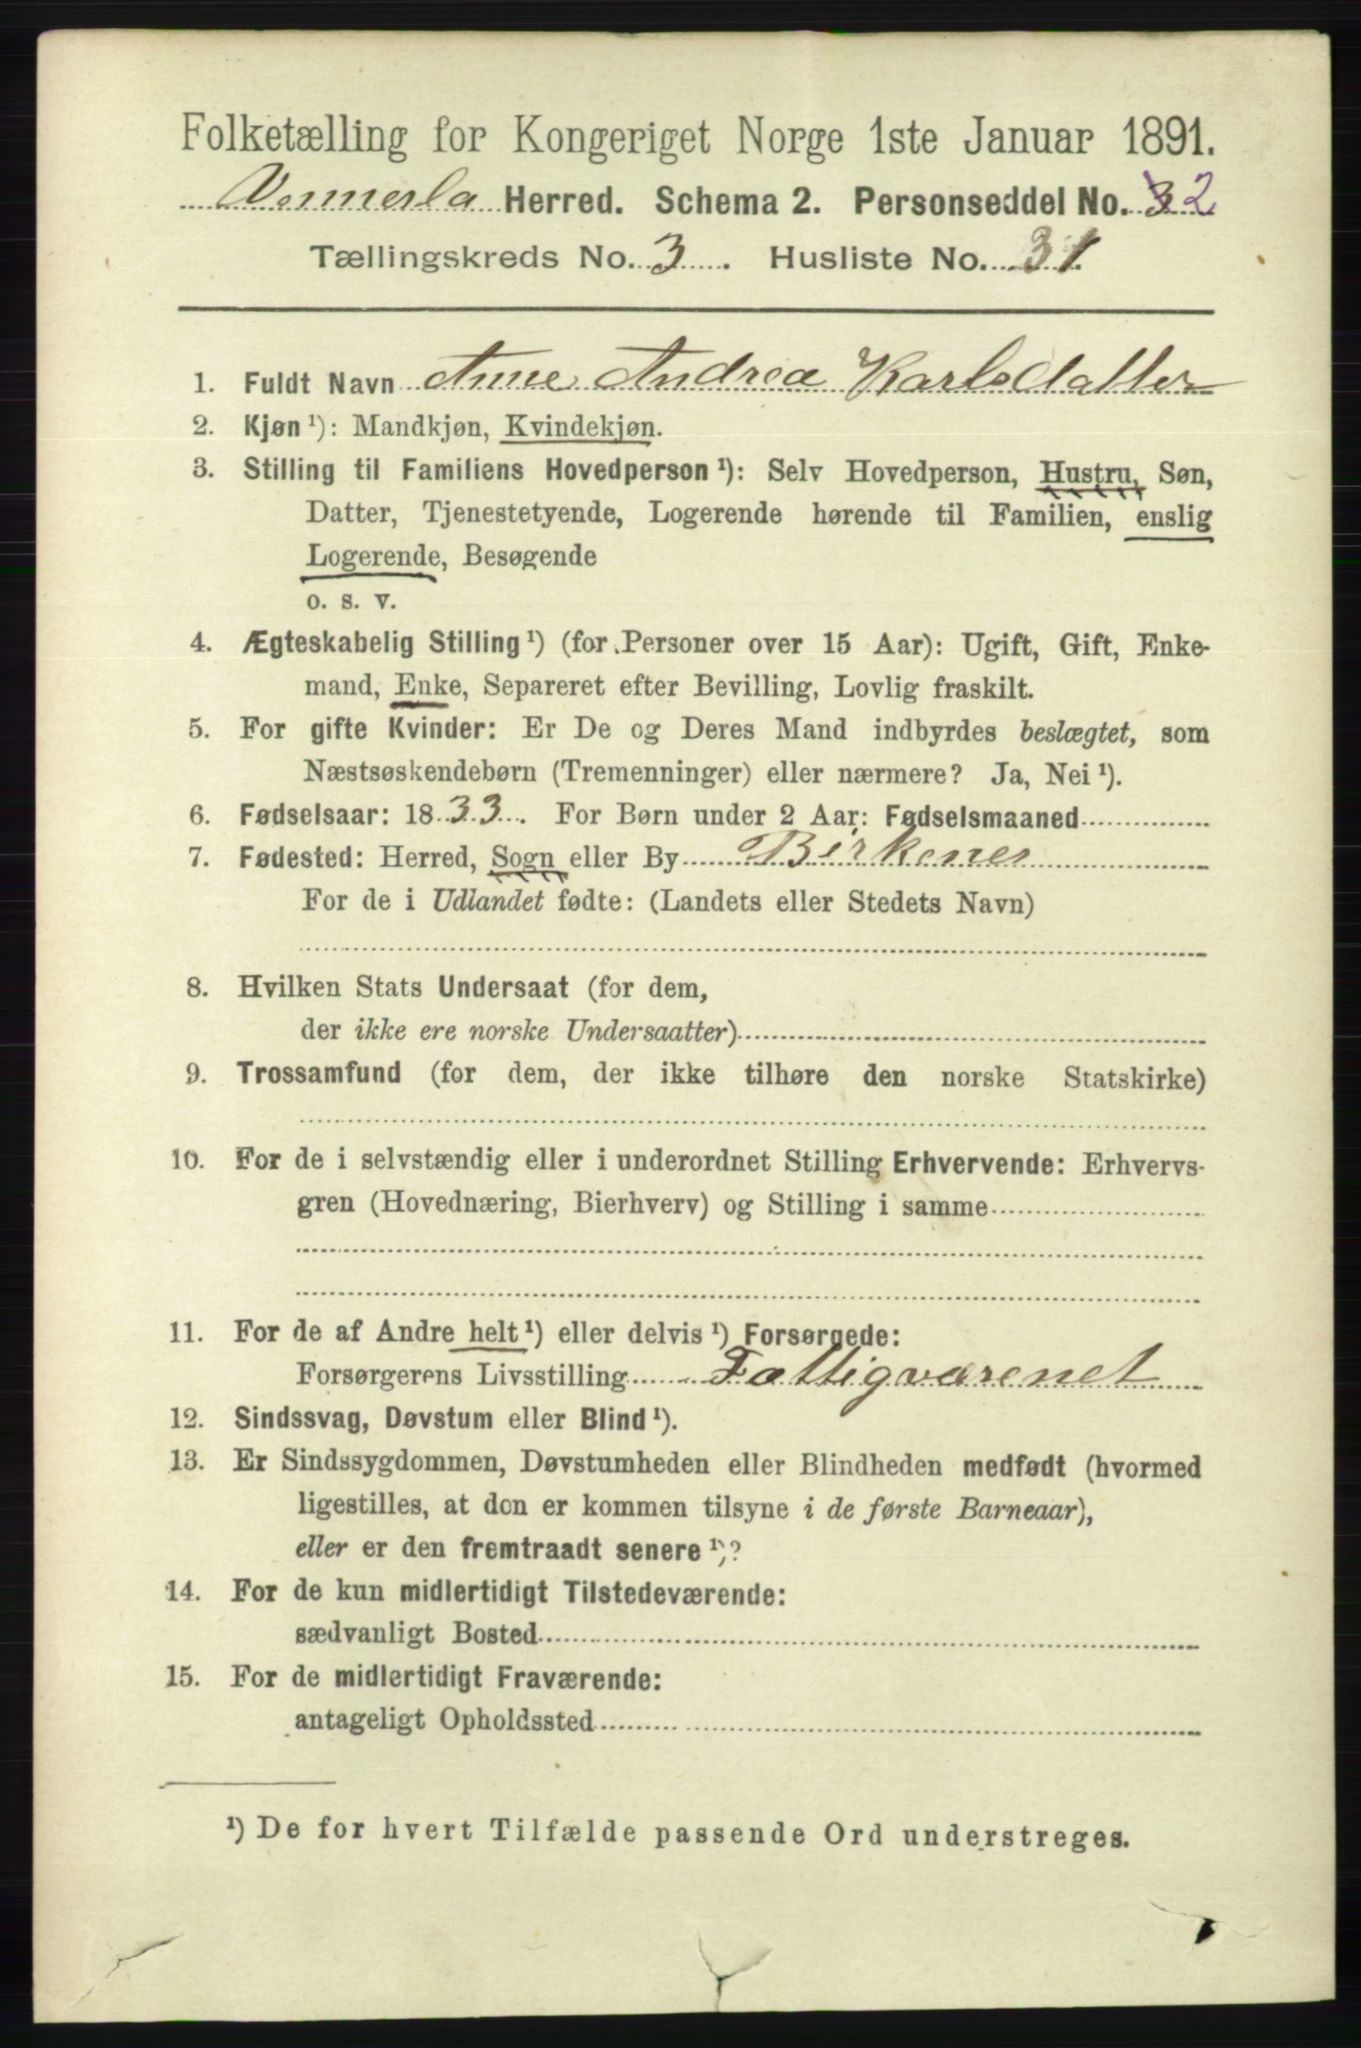 Folketælling for Kongeriget Norge 1ste Januar 1891.
Vennerla Herred. Schema 2. Personseddel No. 3 2
Tællingskreds No. 3. Husliste No. 31.
1. Fuldt Navn Anne Andrea Karlsdatter
2. Kjøn ¹): Mandkjøn, Kvindekjøn.
3. Stilling til Familiens Hovedperson ¹): Selv Hovedperson, Hustru, Søn,
Datter, Tjenestetyende, Logerende hørende til Familien, enslig
Logerende, Besøgende
o. s. v.
4. Ægteskabelig Stilling ¹) (for Personer over 15 Aar): Ugift, Gift, Enke-
mand, Enke, Separeret efter Bevilling, Lovlig fraskilt.
5. For gifte Kvinder: Er De og Deres Mand indbyrdes beslægtet, som
Næstsøskendebørn (Tremenninger) eller nærmere? Ja, Nei ¹).
6. Fødselsaar: 1833. For Børn under 2 Aar: Fødselsmaaned
7. Fødested: Herred, Sogn eller By Birkenes
For de i Udlandet fødte: (Landets eller Stedets Navn)
8. Hvilken Stats Undersaat (for dem,
der ikke ere norske Undersaatter)
9. Trossamfund (for dem, der ikke tilhøre den norske Statskirke)
10. For de i selvstændig eller i underordnet Stilling Erhvervende: Erhvervs-
gren (Hovednæring, Bierhverv) og Stilling i samme
11. For de af Andre helt ¹) eller delvis ¹) Forsørgede:
Forsørgerens Livsstilling Fattigvæsenet
12. Sindssvag, Døvstum eller Blind ¹).
13. Er Sindssygdommen, Døvstumheden eller Blindheden medfødt (hvormed
ligestilles, at den er kommen tilsyne i de første Barneaar),
eller er den fremtraadt senere ¹)?
14. For de kun midlertidigt Tilstedeværende:
sædvanligt Bosted
15. For de midlertidigt Fraværende:
antageligt Opholdssted
¹) De for hvert Tilfælde passende Ord understreges.